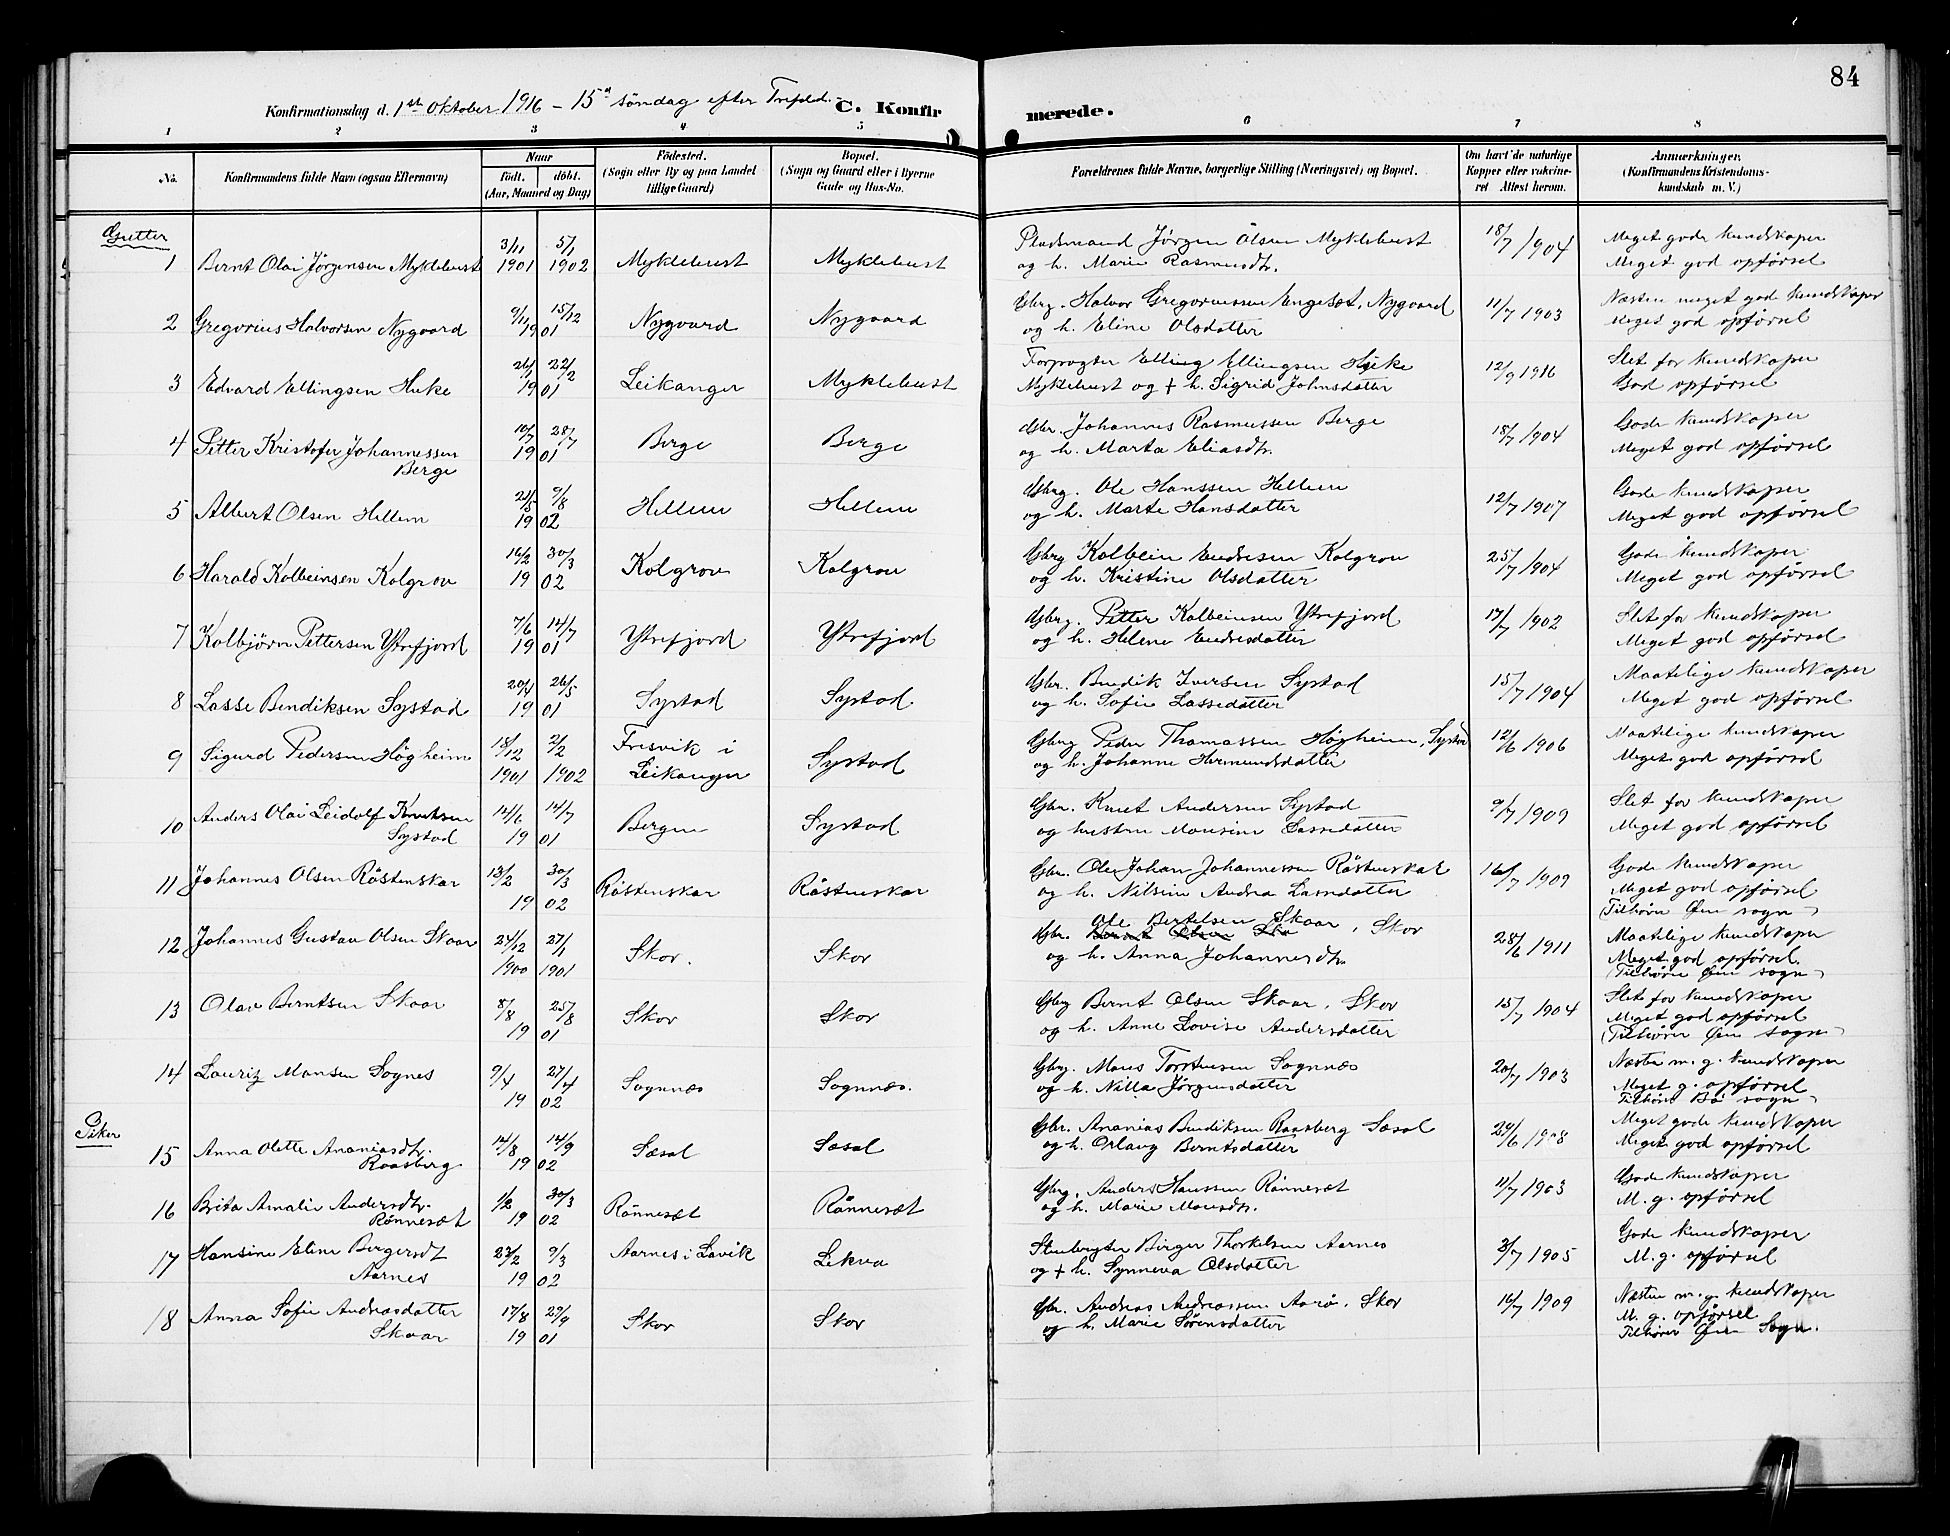 84
Konfirmationsdag d. 1st Oktober 1916 - 15d søndag efter Trefold. C. Konfirmerede.
1 2 3 4 5 6 7 8
No. Konfirmandens fulde Navn (ogsaa Efternavn) Naar født. døbt. (Aar, Maaned og Dag) Fødested. (Sogn eller By og paa Landet tillige Gaard) Bopæl. (Sogn og Gaard eller i Byerne Gade og Hus-No. Forældrenes fulde Navne, borgerlige Stilling (Næringsvei) og Bopæl. Om havt de naturlige Kopper eller vakcineret Attest herom. Anmærkninger. (Konfirmandens Kristendomskundskab m. V.)
Gutter
1 Bernt Olai Jørgensen Myklebust 3/11 1901 5/1 1902 Myklebust Myklebust Pladsmand Jørgen Olsen Myklebust 18/7 1904 Meget gode kundskaper
og h. Marie Rasmusdtr. Meget god opførsel
2 Gregorius Halvorsen Nygaard 9/11 15/12 1901 Nygaard Nygaard Gbrg. Halvor Gregoriussen Engesæt, Nygaard 11/7 1903 Næsten meget gode kundskaper
og h. Eline Olsdatter Meget god opførsel
3 Edvard Ellingsen Huke 26/1 22/2 1901 Leikanger Myklebust Forpagter Elling Ellingsen Huke 12/9 1916 Slet for kundskaper
Myklebust og + h. Sigrid Johnsdatter God opførsel
4 Petter Kristofer Johannessen 10/7 28/7 1901 Berge Berge Gbr. Johannes Rasmussen Berge 18/7 1904 Gode kundskaper
Berge og h. Marta Eliasdtr. Meget god opførsel
5 Albert Olsen Hellem 21/5 9/8 1902 Hellem Hellem Gbrg. Ole Hanssen Hellem 12/7 1907 Gode kundskaper
og h. Marte Hansdatter Meget god opførsel
6 Harald Kolbeinsen Kolgrov 16/2 30/3 1902 Kolgrov Kolgrov Gbrg Kolbein Endresen Kolgrov 25/7 1904 Gode kundskaper
og h. Kristine Olsdatter Meget god opførsel
7 Kolbjørn Pettersen Ytrefjord 7/6 14/7 1901 Ytrefjord Ytrefjord Gbrg. Petter Kolbeinsen Ytrefjord 17/7 1902 Slet for kundskaper
og h. Helene Endresdatter Meget god opførsel
8 Lasse Bendiksen Systad 20/4 26/5 1901 Systad Systad Gbr. Bendik Iversen Systad 15/7 1904 Maatelige kundskaper
og h. Sofie Lassedatter Meget god opførsel
9 Sigurd Pedersen Høgheim 18/12 1901 2/2 1902 Fresvik i Leikanger Systad Gbrg Peder Thomassen Høgheim, Systad 12/6 1906 Maatelige kundskaper
og h. Johanne Hermundsdatter Meget god opførsel
10 Anders Olai Leidolf Knutsen 14/6 14/7 1901 Bergen Systad Gbr. Knut Andersen Systad 9/7 1909 Slet for kundskaper
Systad og hustru Monsine Lassedatter Meget god opførsel
11 Johannes Olsen Røstenskar 13/2 30/3 1902 Røstenskar Røstenskar Gbr. Ole Johan Johannessen Røstenskar 16/7 1909 Gode kundskaper
og h. Nilsine Andrea Larsdatter Meget god opførsel
(Tilhører Øen sogn)
12 Johannes Gustav Olsen Skaar 24/12 1900 27/1 1901 Skor. Skor Gbr. Ole Bertelsen Skaar, Skor 28/6 1911 Maatelige kundskaper
og h. Anna Johannesdtr. Meget god opførsel.
(Tilhører Øen sogn)
13 Olav Berntsen Skaar 8/8 25/8 1901 Skor Skor Gbrg Bernt Olsen Skaar, Skor 15/7 1904 Slet for kundskaper
og h. Anne Lovise Andersdatter Meget god opførsel
(Tilhører Øen sogn)
14 Lauriz Monsen Sognes 9/4 27/4 1902 Sognnæs Sognnæs. Gbrg. Mons Torstensen Sognnæs 20/7 1903 Næsten m. g. kundskaper
og h. Nilla Jørgensdatter Meget g. opførsel
Tilhører Bø sogn
Piker
15 Anna Olette Ananiasdtr. 14/8 14/9 1902 Sæsol Sæsol Gbr. Ananias Bendiksen Raasberg Sæsol 29/6 1908 Meget gode kundskaper
Raasberg og h. Orlaug Berntsdatter Meget god opførsel
16 Brita Amalie Andersdtr. 1/2 30/3 1902 Rønnesæt Rønnesæt Gbrg. Anders Hanssen Rønnesæt 11/7 1903 Gode kundskaper
Rønnesæt og h. Marie Monsdtr. M. g. opførsel
17 Hansine Eline Bergersdt 23/2 9/3 1902 Aarnes i Lavik Lekva Stenbryter Birger Thorkelsen Aarnes 3/7 1905 Gode kundskaper
Aarnes og + h. Synneva Olsdatter M. g. opførsel
18 Anna Sofie Andreasdatter 17/8 29/9 1901 Skor Skor Gbr. Andreas Andreassen Aarø, Skor 16/7 1909 Næsten m. g. kundskaper
Skaar og h. Marie Sørensdatter M. g. opførsel
Tilhører Øen Sogn.